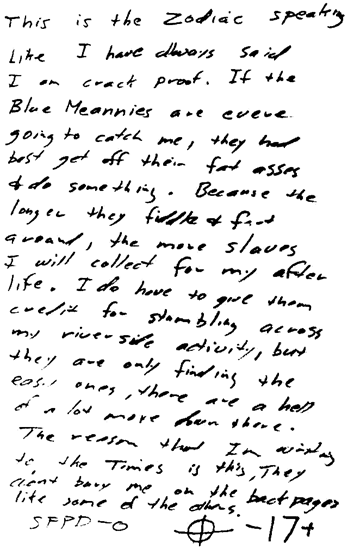 This is the Zodiac speaking
Like I have always said
I am crack proof. If the
Blue Meannies are evere
going to catch me, they had
best get off their fat asses
& do something. Because the
longer they fiddle & fart
around, the more slaves
I will collect for my after
life. I do have to give them
credit for stumbling across
my riverside activity, but
they are only finding the
easy ones, there are a hell
of a lot more down there.
The reason that Im writing
to the Times is this, They
dont bury me on the back pages
like some of the others.
SFPD-0 -17+